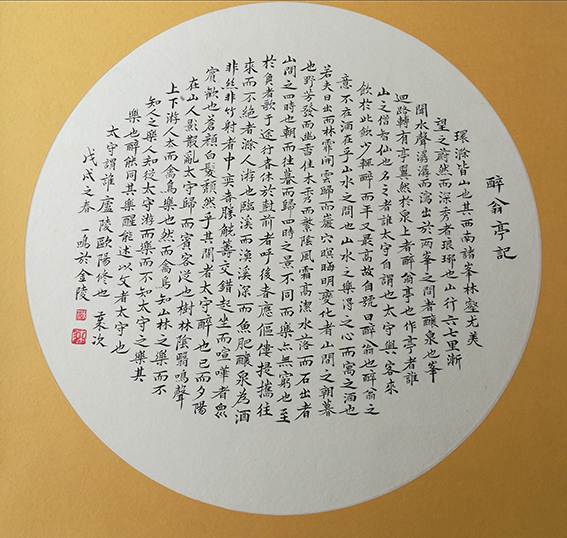 醉翁亭記
環滁皆山也其西南諸峯林壑尤美
望之蔚然而深秀者琅琊也山行六七里漸
聞水聲潺潺而瀉出於兩峯之間者釀泉也峯
迴路轉有亭翼然於泉上者醉翁亭也作亭者誰
山之僧智仙也名之者誰太守自謂也太守與客來
飲於此飲少輒醉而年又最高故自號曰醉翁也醉翁之
意不在酒在乎山水之間也山水之樂得之心而寓之酒也
若夫日出而林霏開雲歸而巖穴暝晦明變化者山間之朝暮
也野芳發而幽香佳木秀而繁陰風霜高潔水落而石出者
山間之四時也朝而往暮而歸四時之景不同而樂亦無窮也至
於負者歌于途行者休於樹前者呼後者應傴僂提攜往
來而不絕者滁人游也臨溪而漁溪深而魚肥釀泉為酒
非絲非竹射者中奕者勝觥籌交錯起坐而喧嘩者眾
賓歡也蒼顏白髮頹然乎其間者太守醉也已而夕陽
在山人影散亂太守歸而賓客從也樹林陰翳鳴聲
上下游人去而禽鳥樂也然而禽鳥知山林之樂而不
知人之樂人知從太守游而樂而不知太守之樂其
樂也醉能同其樂醒能述以文者太守也
太守謂誰廬陵歐陽修也 次
戊戌之春 一鳴於金陵